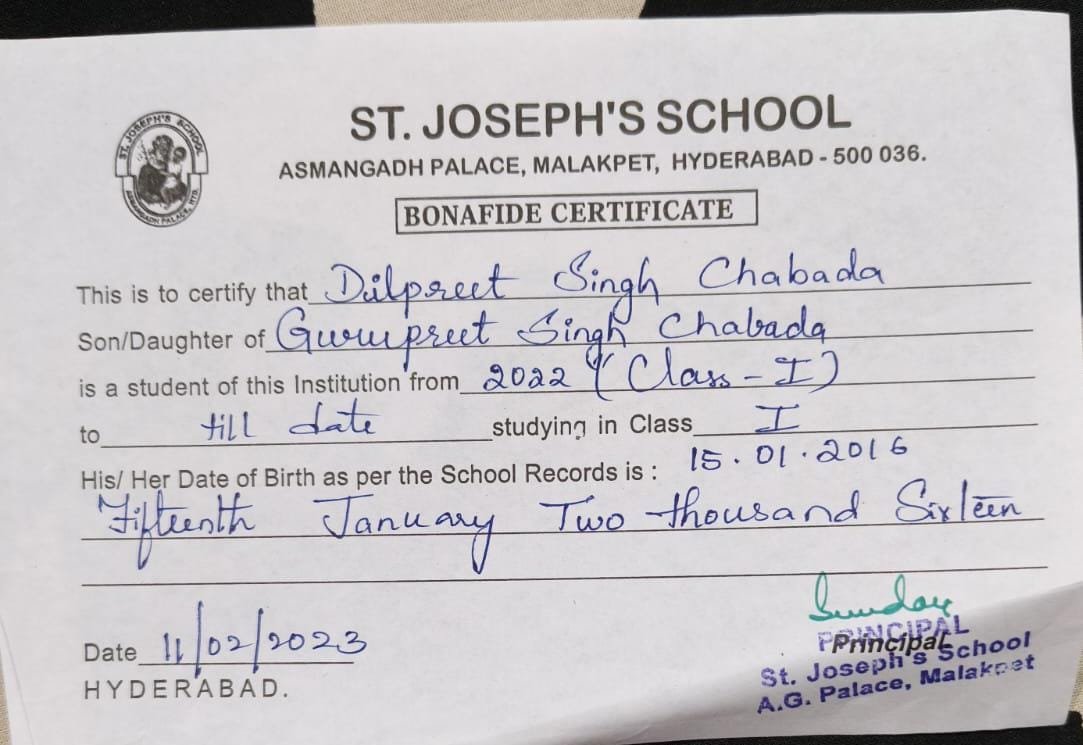 ST. JOSEPH'S SCHOOL
ST. JOSEPH'S SCHOOL
ASMANGADH PALACE, MALAKPET, HYDERABAD - 500 036.
ASMANGADH PALACE, HYD.
BONAFIDE CERTIFICATE
This is to certify that Dilpreet Singh Chabada
Son/Daughter of Gurupreet Singh Chabada
is a student of this Institution from 2022 (Class - I)
to till date studying in Class I
His/ Her Date of Birth as per the School Records is : 15.01.2016
Fifteenth January Two thousand Sixteen
Date 11/02/2023
HYDERABAD.
PRINCIPAL
Principal
St. Joseph's School
A.G. Palace, Malakpet